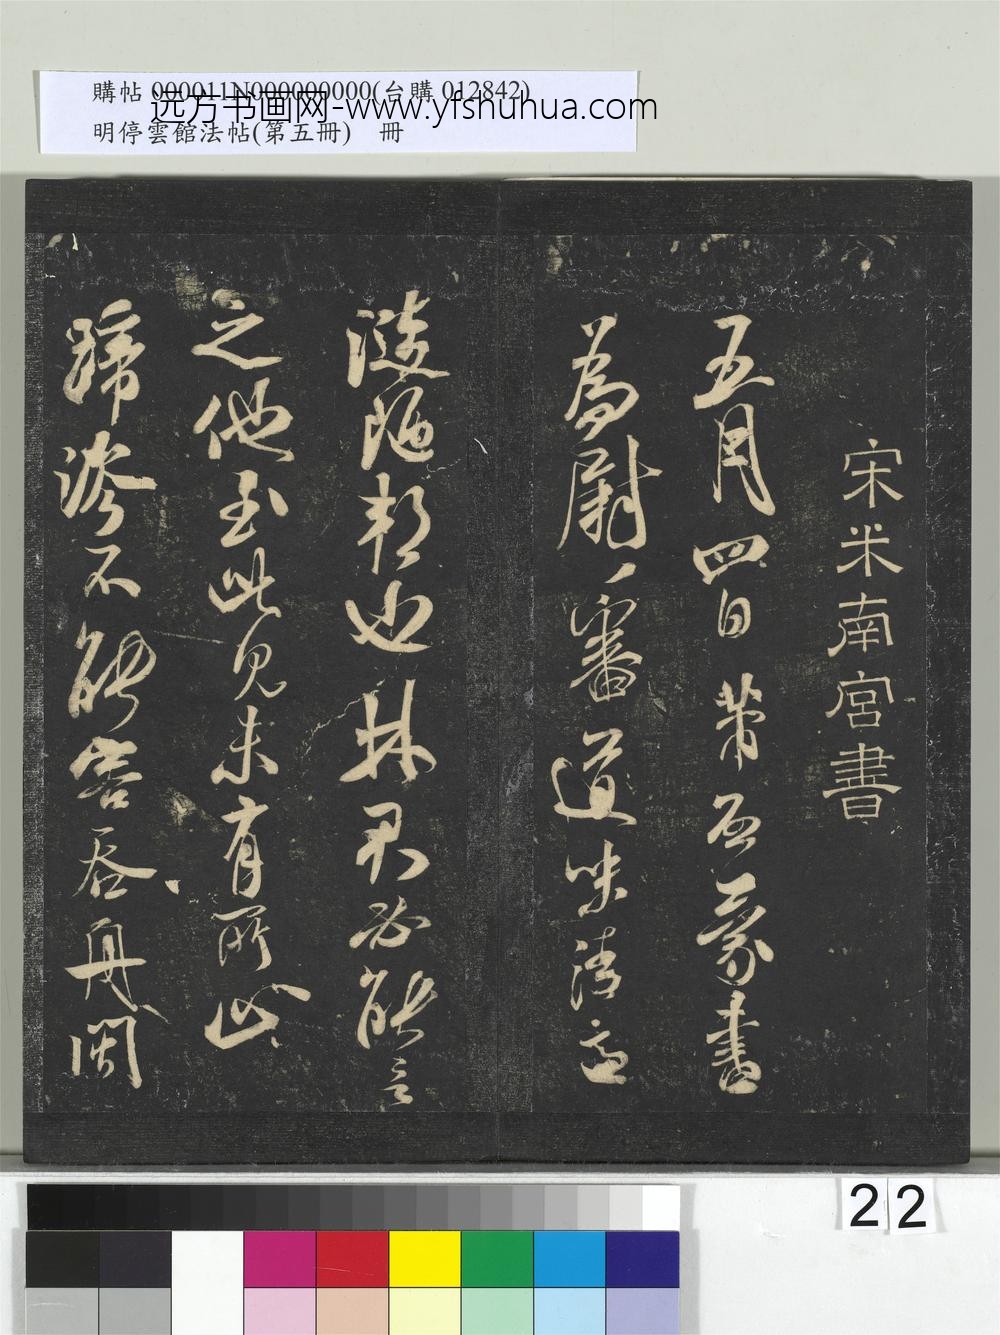 購帖 000011N000000000(台購 012842)
远方书画网-www.yfshuhua.com
明停雲館法帖(第五冊) 冊
宋米南宮書
五月四日芾啓蒙書
為尉審道味清適
漣陋邦也林君必能言
之他至此見未有所止
蹄涔不能容吞舟閩
22